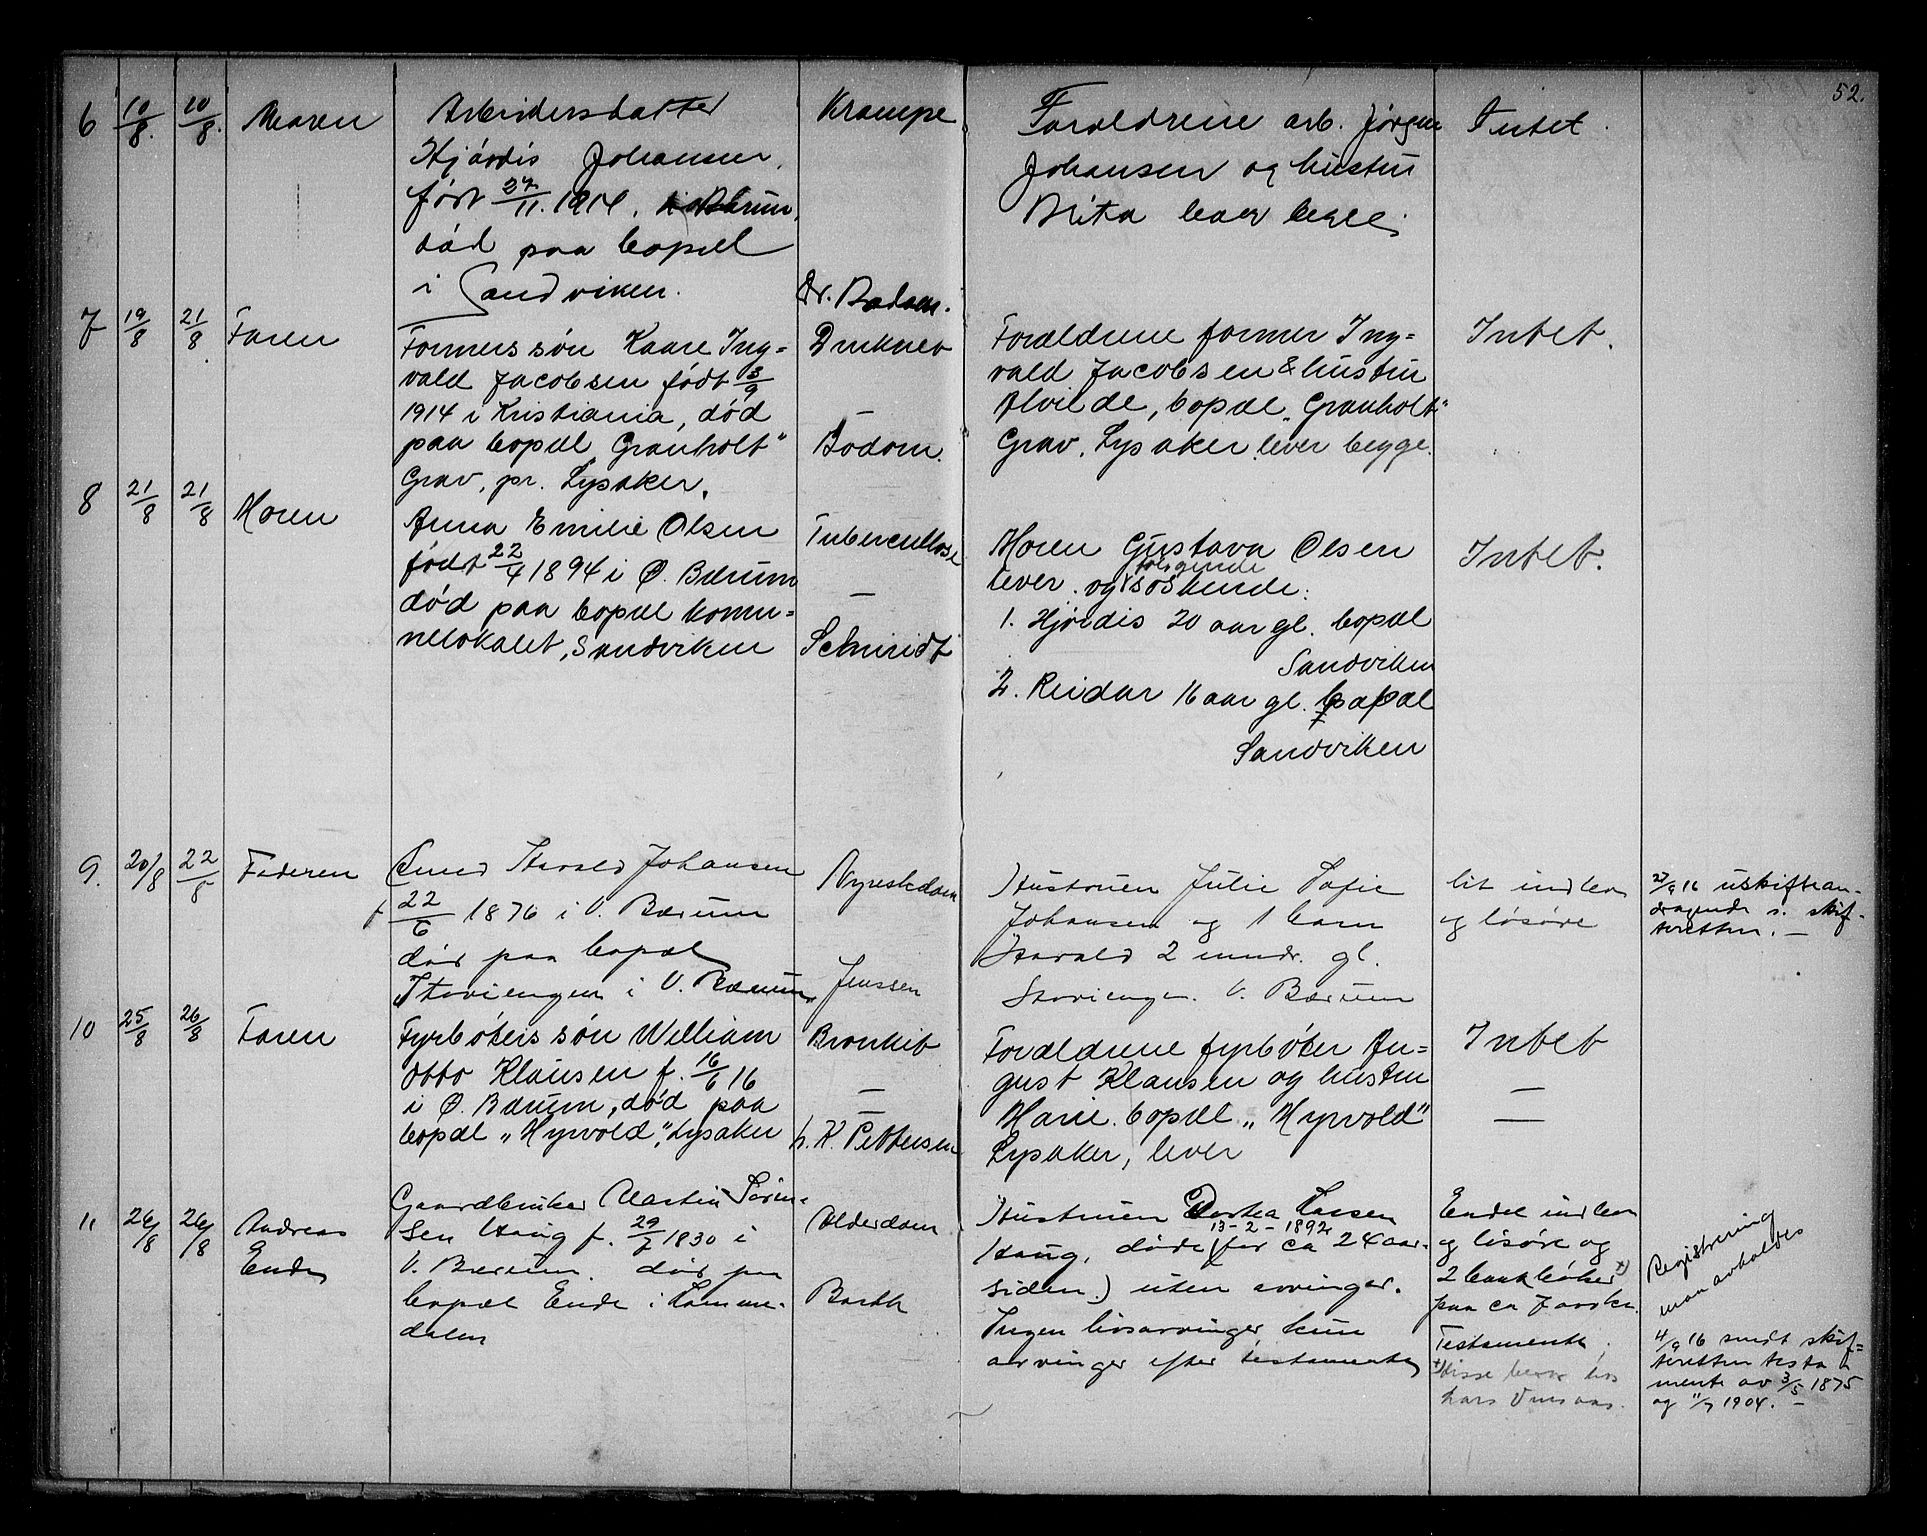 52.
6 10/8. 10/8. Moren Arbeidersdatter Krampe Foræeldrene arb. Jørgen Intet.
Hjørdis Johansen. Johansen og hustru
født 27/11. 1914. Brita lever begge.
død paa bopæl
i Sandviken. Dr. Bodom.
7 19/8 21/8 Faren Formerssøn Kaare Ing= Druknet Forældrene former Ing= Intet.
vald Jacobsen født 3/9 vald Jacobsen & hustru
1914 i Kristiania, død – Alvilde, bopæl „Granholt"
paa bopæl „Granholt" Bodom. Grav, Lysaker lever begge.
Grav, pr. Lysaker.
8 21/8 21/8 Moren Anna Emilie Olsen Tuberculose Moren Gustava Olsen Intet.
født 22/4 1894 i Ø. Bærum lever. og følgende søskende:
død paa bopæl kommu= – 1. Hjørdis 20 aar gl. bopæl
nelokalet, Sandviken Schmidt Sandviken
2. Reidar 16 aar gl. bopæl
Sandviken
9. 20/8 22/8 Faderen Harald Johansen Nyresykdom Hustruen Julie Sofie lit indbo 27/9 16 uskiftean-
f 22/6 1876 i V. Bærum Johansen og 1 barn og løsøre dragende s. skif-
død paa bopæl Harald 2 mndr. gl. teretten. –
Stoviengen i V. Bærum Jenssen Stoviengen. V. Bærum
10 25/8 26/8 Faren Fyrbøters søn William Bronkit Forældrene fyrbøter Au= Intet
Otto Klausen f. 16/6 16 – gust Klausen og hustru –
i Ø. Bærum, død paa Marie. bopæl „Myrvold" –
bopæl „Myrvold", Lysaker h. K. Pettersen Lysaker, lever
11 26/8 26/8 Andreas Gaardbruker Martin Søren- Alderdom Hustruen Dortea Larsen Endel indbo Registrering
Ende sen Haug f. 29/7 1830 i Haug, døde (13-2-1892 for ca 24 aar og løsøre og maa avholdes
V. Bærum. død paa siden.) uten arvinger. 2 bankbøker x)
bopæl Ende i Lomme- Barth Ingen livsarvinger, kun paa ca 7000 kr.
dalen arvinger efter testamente Testamente. 4/9 16 sendt skif=
x) disse beror hos teretten testa=
Lars mente av 3/5 1875
og 11/7 1904. –